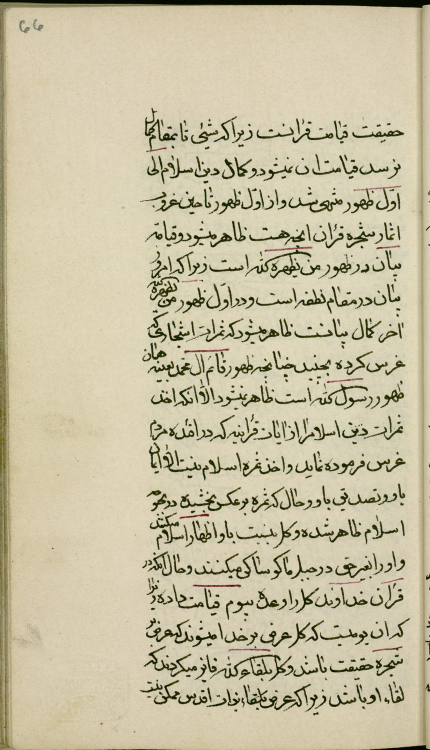 66
حقیقت قیامت قرآنست زیرا که شیئی تا بمقام کمال
نرسد قیامت ان نمیشود و کمال دین اسلام الی
اول ظهور منتهی شد و از اول ظهور تا حین غروب
اثمار شجره قرآن انچه هست ظاهر میشود و قیامة
بیان در ظهور من یظهره الله است زیرا که امروز
بیان در مقام نطفه است و در اول ظهور من یظهره الله
اخر کمال بیانست ظاهر میشود که ثمرات اشجاری که
غرس کرده بچیند چنانچه ظهور قائم ال محمد بعینه همان
ظهور رسول الله است ظاهر نمیشود الا انکه اخذ
ثمرات دین اسلام را از ایات قرآنیه که در افئده مردم
غرس فرموده نماید و اخذ ثمره اسلام نیست الا ایمان
باو و تصدیق باو و حال که ثمره بر عکس بخشیده و در بحبوحه
اسلام ظاهر شده و کل بنسبت باو اظهار اسلام میکنند
و او را بغیر حق در جبل ماکو ساکن میکنند و حال انکه در
قرآن خداوند کل را وعده بیوم قیامت داده زیرا
که ان یومیست که کل عرض بر خدا میشوند که عرض بر
شجره حقیقت باشد و کل بلقاء الله فائز میگردند که
لقاء او باشد زیرا که عرض بلقاء بذات اقدس ممکن نیست